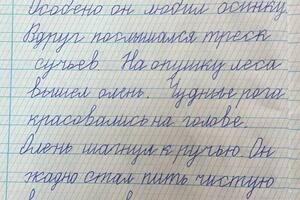 Особено он любил осинку
Вдруг послышался треск
сучьев. На опушку леса
вышел олень. Чудные рога
красовались на голове.
Олень шагнул к ручью. Он
жадно стал пить чистую